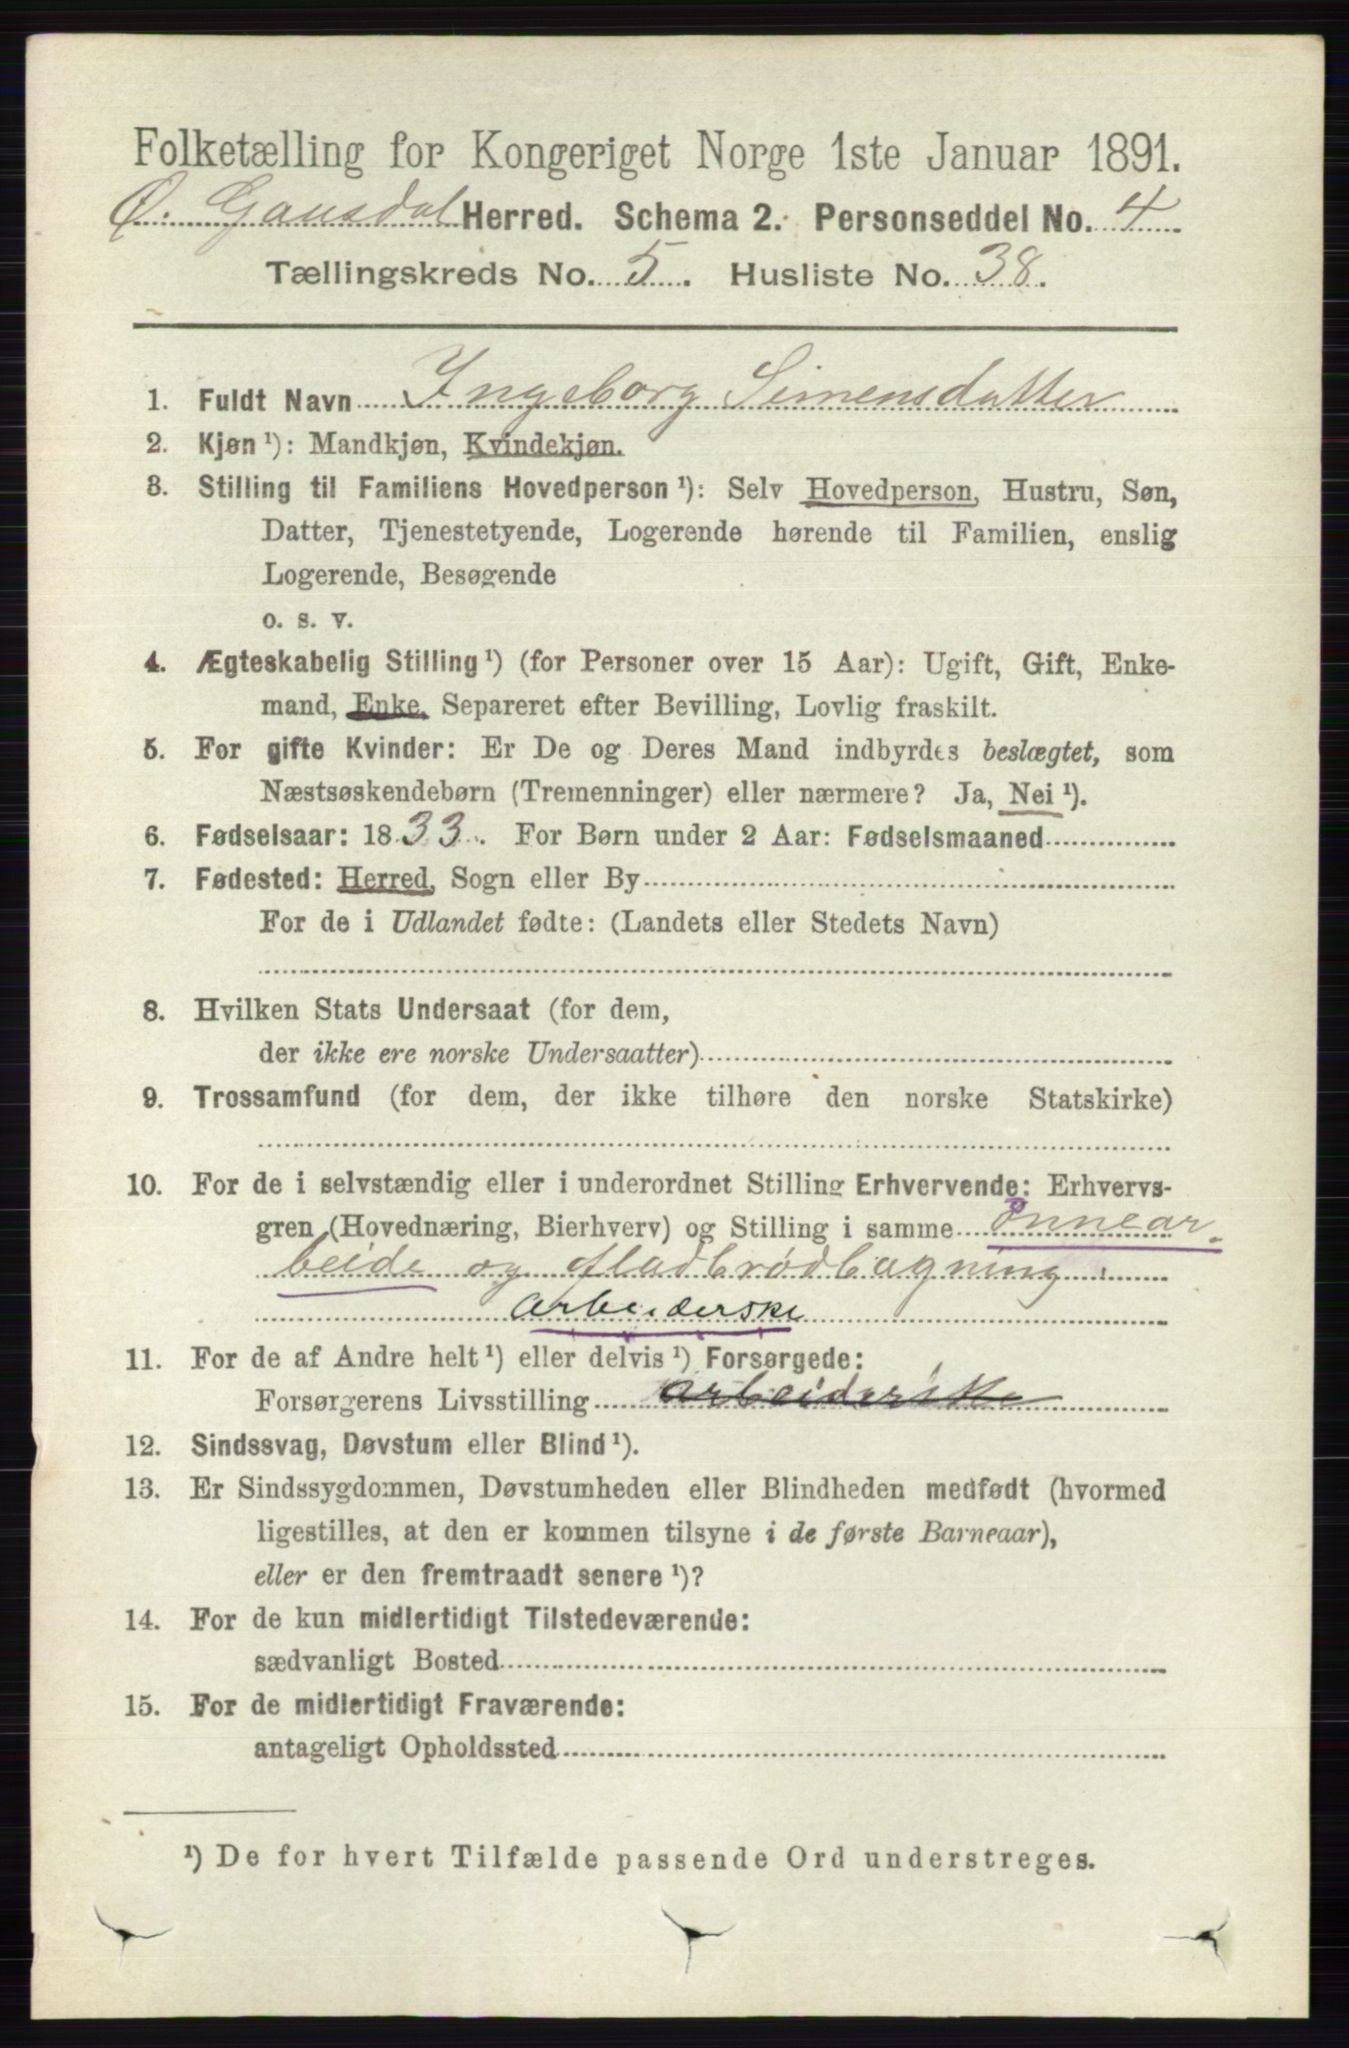 Folketælling for Kongeriget Norge 1ste Januar 1891.
Ø. Gausdal Herred. Schema 2. Personseddel No. 4
Tællingskreds No. 5. Husliste No. 38.
1. Fuldt Navn Ingeborg Simensdatter
2. Kjøn ¹): Mandkjøn, Kvindekjøn.
3. Stilling til Familiens Hovedperson ¹): Selv Hovedperson, Hustru, Søn,
Datter, Tjenestetyende, Logerende hørende til Familien, enslig
Logerende, Besøgende
o. s. v.
4. Ægteskabelig Stilling ¹) (for Personer over 15 Aar): Ugift, Gift, Enke-
mand, Enke, Separeret efter Bevilling, Lovlig fraskilt.
5. For gifte Kvinder: Er De og Deres Mand indbyrdes beslægtet, som
Næstsøskendebørn (Tremenninger) eller nærmere? Ja, Nei ¹).
6. Fødselsaar: 1833. For Børn under 2 Aar: Fødselsmaaned
7. Fødested: Herred, Sogn eller By
For de i Udlandet fødte: (Landets eller Stedets Navn)
8. Hvilken Stats Undersaat (for dem,
der ikke ere norske Undersaatter)
9. Trossamfund (for dem, der ikke tilhøre den norske Statskirke)
10. For de i selvstændig eller i underordnet Stilling Erhvervende: Erhvervs-
gren (Hovednæring, Bierhverv) og Stilling i samme Onnear-
beide og fladbrødbagning
arbeiderske
11. For de af Andre helt ¹) eller delvis ¹) Forsørgede:
Forsørgerens Livsstilling arbeiderske
12. Sindssvag, Døvstum eller Blind ¹).
13. Er Sindssygdommen, Døvstumheden eller Blindheden medfødt (hvormed
ligestilles, at den er kommen tilsyne i de første Barneaar),
eller er den fremtraadt senere ¹)?
14. For de kun midlertidigt Tilstedeværende:
sædvanligt Bosted
15. For de midlertidigt Fraværende:
antageligt Opholdssted
¹) De for hvert Tilfælde passende Ord understreges.